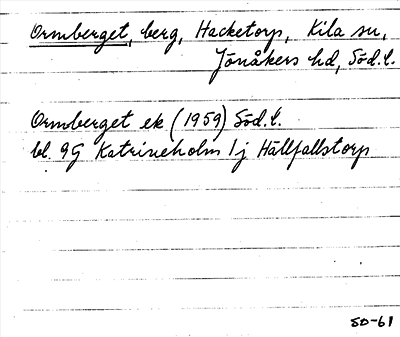 Ormberget, berg, Hacketorp, Kila sn,
Jönåkers hd, Söd.l.
Ormberget ek (1959) Söd.l.
bl. 9G Katrineholm 1j Hällfallstorp
SD-61